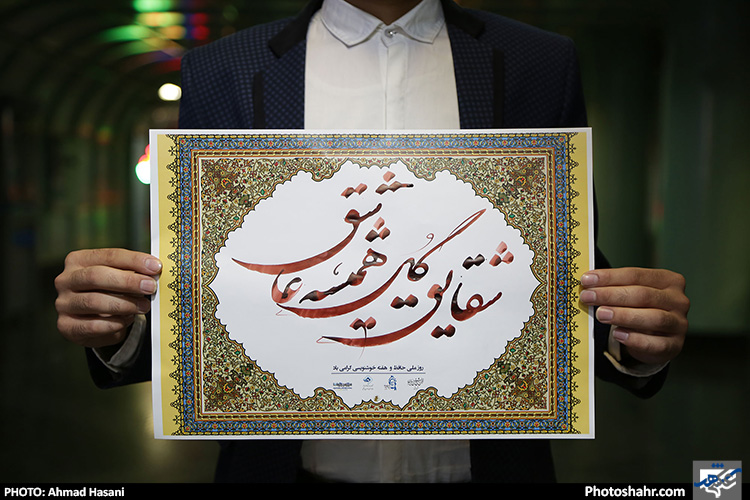 شقایق
گلی
همیشه عاشق
روز ملی حافظ و هفته خوشنویسی گرامی باد
PHOTO: Ahmad Hasani
Photoshahr.com